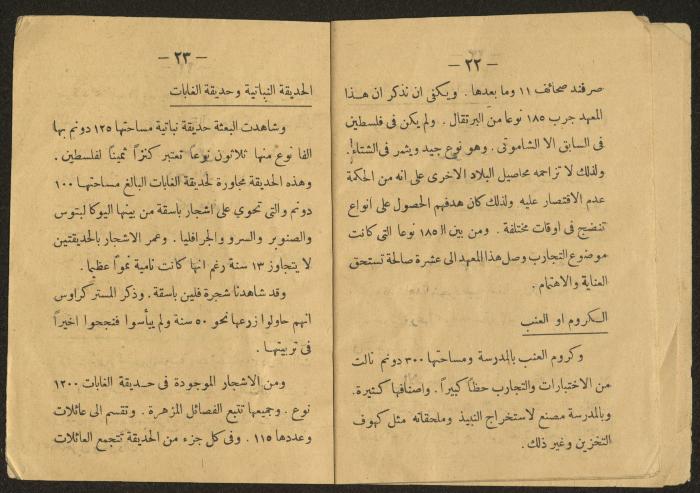 — ٢٢ —
صرفند صحائف ١١ وما بعدها . ويكفي ان نذكر ان هذا
المعهد جرب ١٨٥ نوعا من البرتقال . ولم يكن في فلسطين
في السابق الا الشاموتي . وهو نوع جيد ويثمر في الشتاء .
ولذلك لا تزاحمه محاصيل البلاد الاخرى على انه من الحكمة
عدم الاقتصار عليه ولذلك كان هدفهم الحصول على انواع
تنضج في اوقات مختلفة . ومن بين الـ ١٨٥ نوعا التي كانت
موضوع التجارب وصل هذا المعهد الى عشرة صالحة تستحق
العناية والاهتمام .
الكروم او العنب
وكروم العنب بالمدرسة ومساحتها ٣٠٠ دونم نالت
من الاختبارات والتجارب حظاً كبيراً . واصنافها كثيرة .
وبالمدرسة مصنع لاستخراج النبيذ وملحقاته مثل كهوف
التخزين وغير ذلك .
— ٢٣ —
الحديقة النباتية وحديقة الغابات
وشاهدت البعثة حديقة نباتية مساحتها ١٢٥ دونم بها
الفا نوع منها ثلاثون نوعاً تعتبر كنزاً ثميناً لفلسطين .
وهذه الحديقة مجاورة لحديقة الغابات البالغ مساحتها ١٠٠
دونم والتي تحوي على اشجار باسقة من بينها اليوكالبتوس
والصنوبر والسرو والجرافليا . وعمر الاشجار بالحديقتين
لا يتجاوز ١٣ سنة رغم انها كانت نامية نمواً عظيما .
وقد شاهدنا شجرة فلين باسقة . وذكر المستر كراوس
انهم حاولوا زرعها نحو ٥٠ سنة ولم ييأسوا فنجحوا اخيراً
في تربيتها .
ومن الاشجار الموجودة في حديقة الغابات ١٢٠٠
نوع . وجميعها تتبع الفصائل المزهرة . وتقسم الى عائلات
وعددها ١١٥ . وفي كل جزء من الحديقة تتجمع العائلات